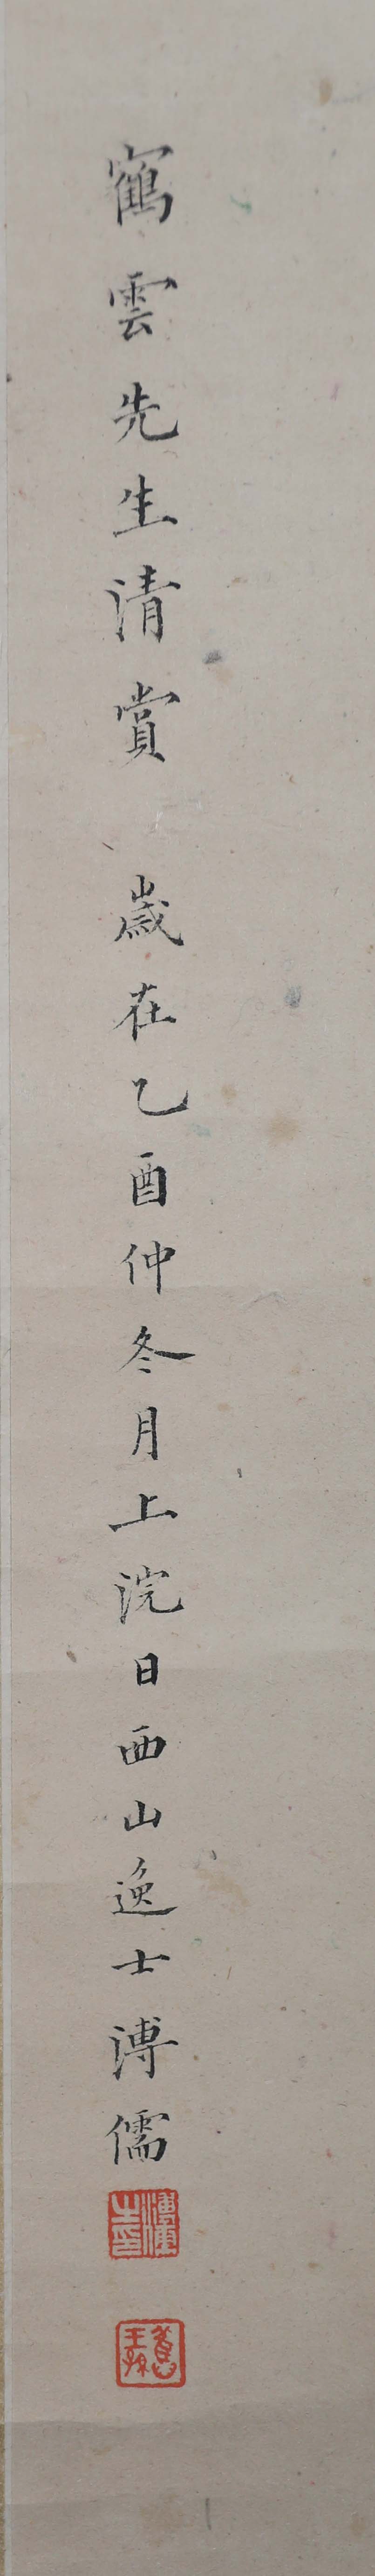 寉鳥雲先生清賞 歲在乙酉仲冬月上浣日西山逸士溥儒
溥儒之印
舊王孫